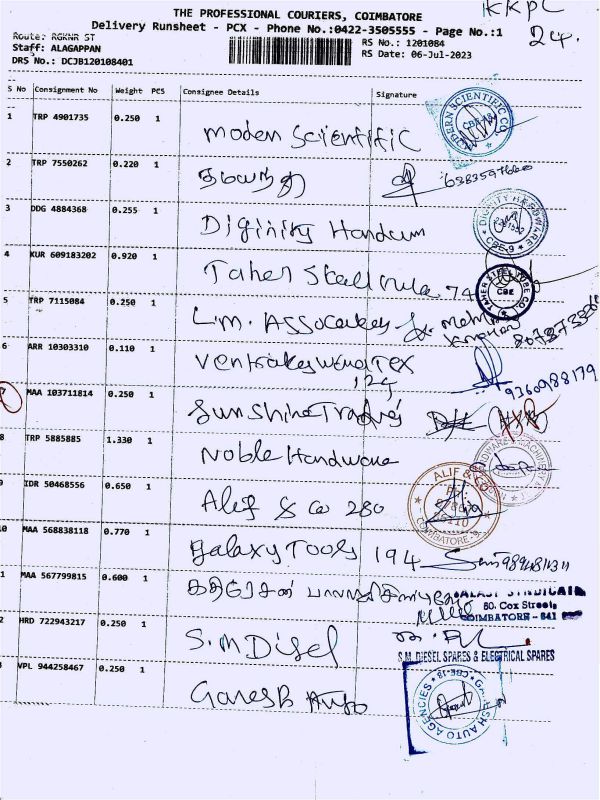 KKPC
24.
THE PROFESSIONAL COURIERS, COIMBATORE
Delivery Runsheet - PCX - Phone No.:0422-3505555 - Page No.:1
Route: RGKNR ST
Staff: ALAGAPPAN
DRS No.: DCJB120108401
RS No.: 1201084
RS Date: 06-Jul-2023
S No Consignment No Weight PCS Consignee Details Signature
1 TRP 4901735 0.250 1 Modern Scientific
MODERN SCIENTIFIC CO.
2 TRP 7550262 0.220 1
3 DDG 4884368 0.255 1 Diginity Hardwm
DIGNITY HARDWARE CBE-9
4 KUR 609183202 0.920 1 Taher Steel 74
TAHER STEEL TUBE CO. CBE
5 TRP 7115084 0.250 1 L.M. Assocates
6 ARR 10303310 0.110 1 Tex 124
9360988179
7 MAA 103711814 0.250 1 Sunshine Trading
8 TRP 5885885 1.330 1 Noble Hardware
9 IDR 50468556 0.650 1 Alif & Co 280
ALIF & CO COIMBATORE
10 MAA 568838118 0.770 1 Galaxy Tools 194
11 MAA 567799815 0.600 1
60. Cox Street
COIMBATORE - 641
12 HRD 722943217 0.250 1 S.M Disel
S.M. DIESEL SPARES & ELECTRICAL SPARES
13 VPL 944258467 0.250 1 Ganesh Auto
GANESH AUTO AGENCIES CBE-18